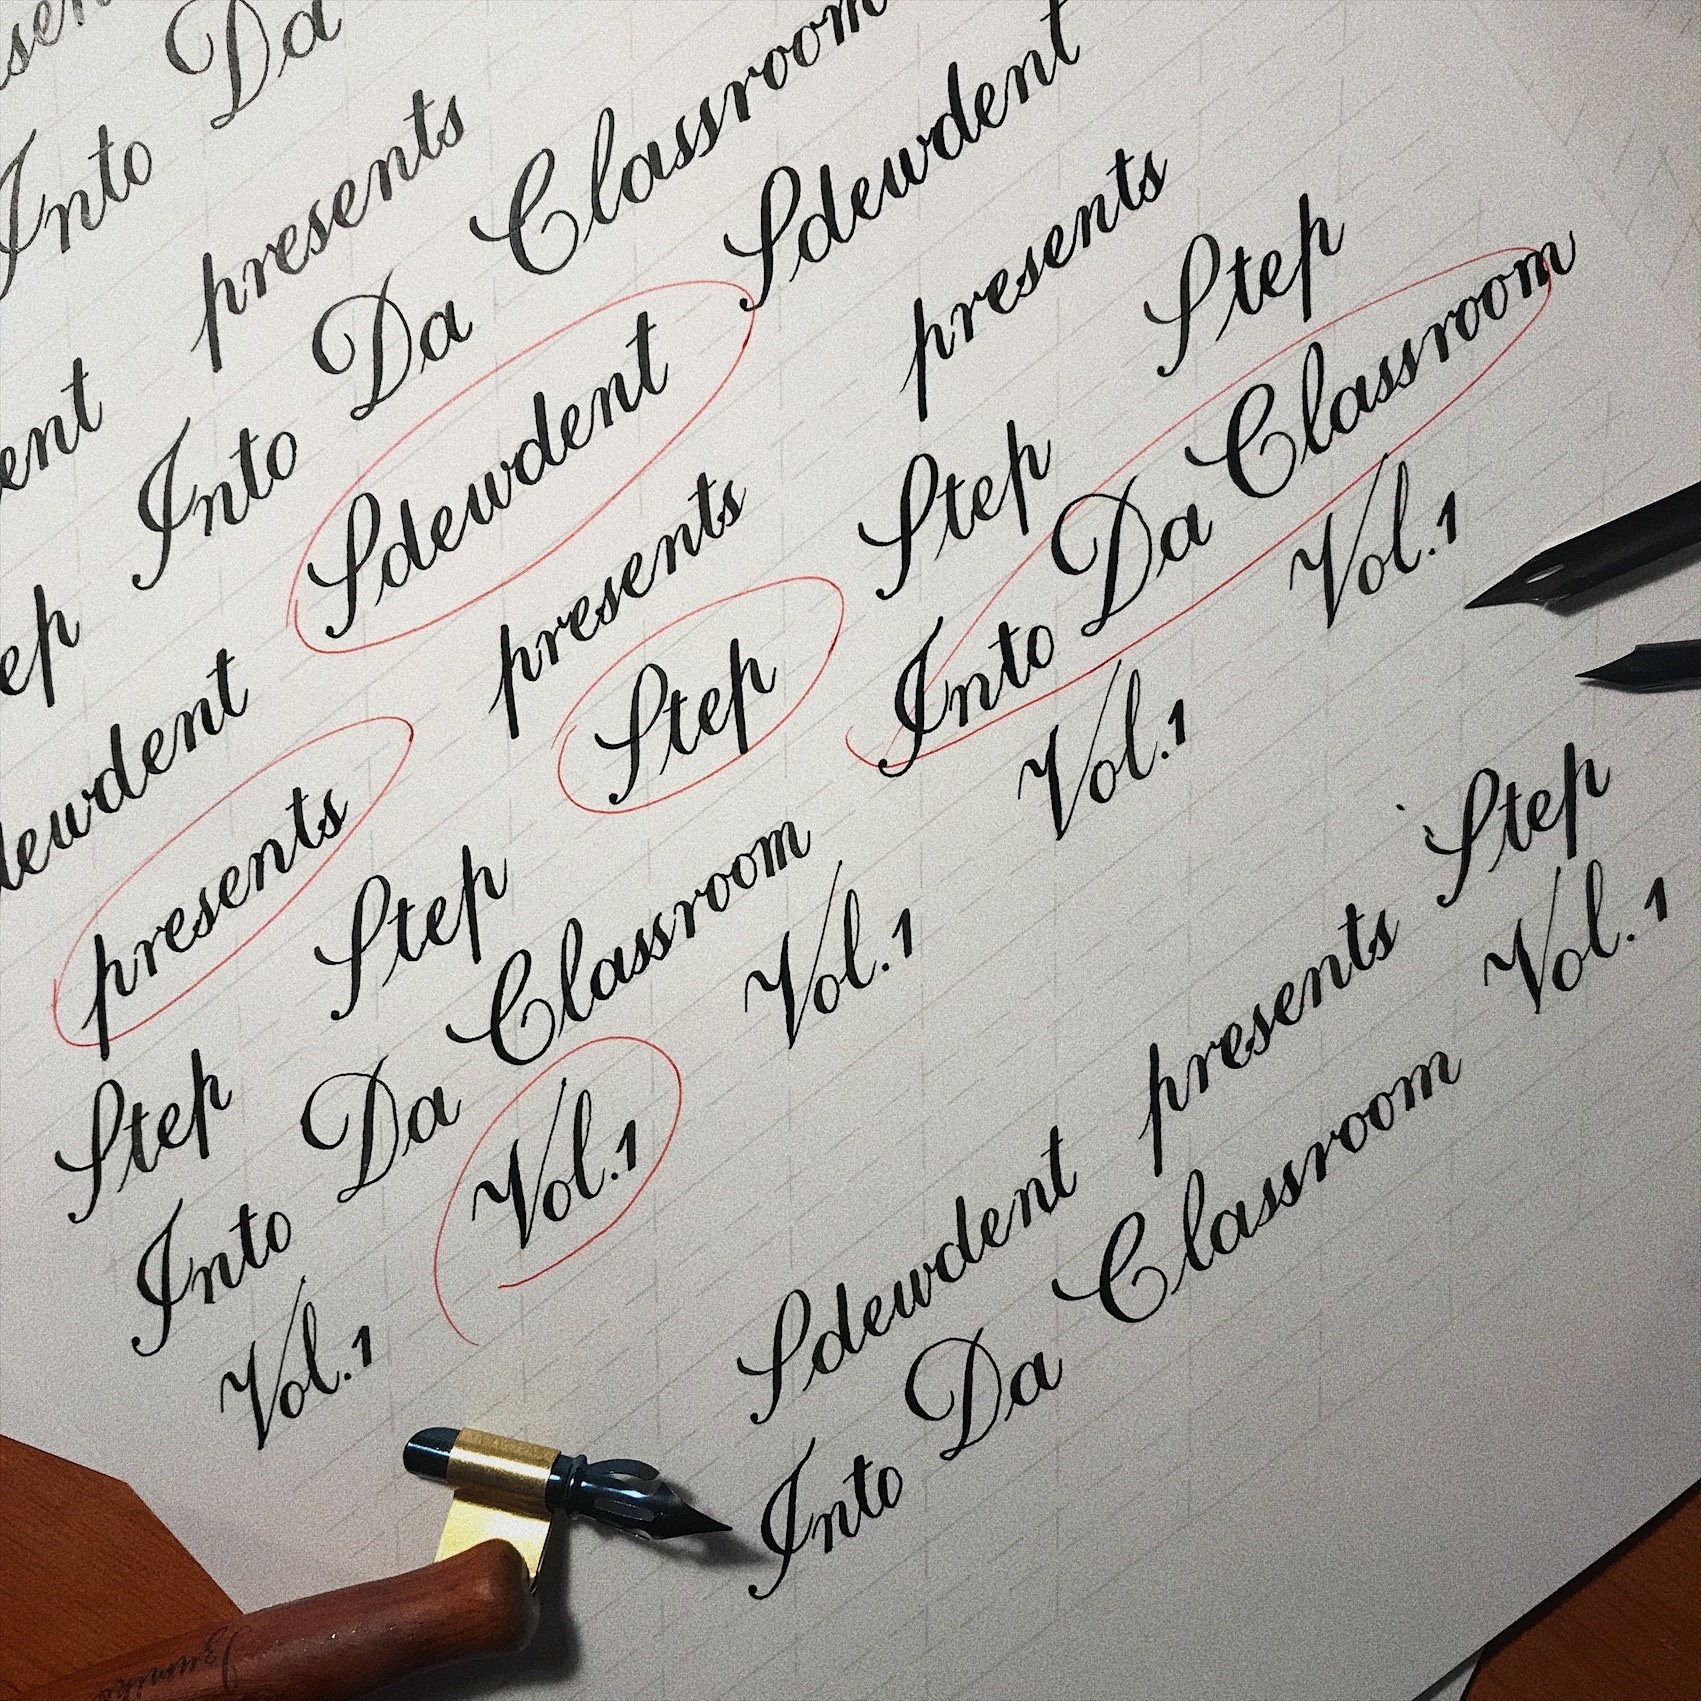 Into Da
presents
Into Da Classroom
Sdewdent Sdewdent
presents presents presents
Step Step Step Step Step
Into Da Classroom Into Da Classroom
Vol.1 Vol.1 Vol.1 Vol.1 Vol.1
Sdewdent presents Step
Into Da Classroom Vol.1